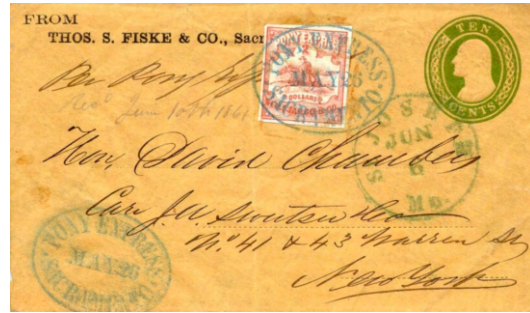 FROM
THOS. S. FISKE & CO., Sac
TEN
CENTS
PONY EXPRESS
DOLLARS
PONY EXPRESS.
MAY 26
SACRAMENTO.
Per Pony
Rec'd June 10th 1861
ST JOSEPH
JUN
6
Mo.
Hon. David Chambers
Care J.
No 41 & 43 Warren St
New York
PONY EXPRESS.
MAY 26
SACRAMENTO